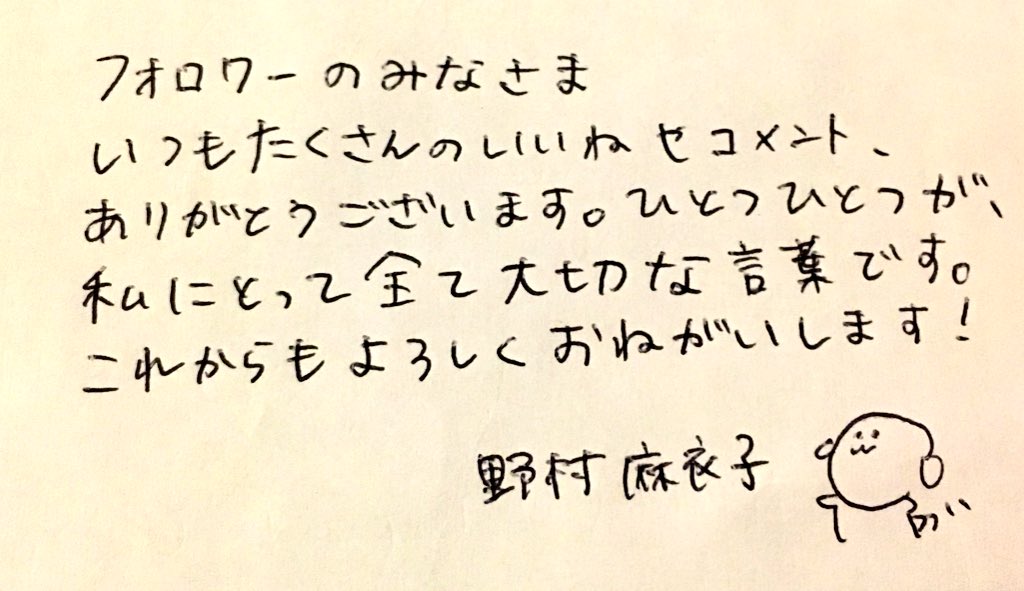 フォロワーのみなさま
いつもたくさんのいいねやコメント、
ありがとうございます。ひとつひとつが、
私にとって全て大切な言葉です。
これからもよろしくおねがいします!
野村麻衣子